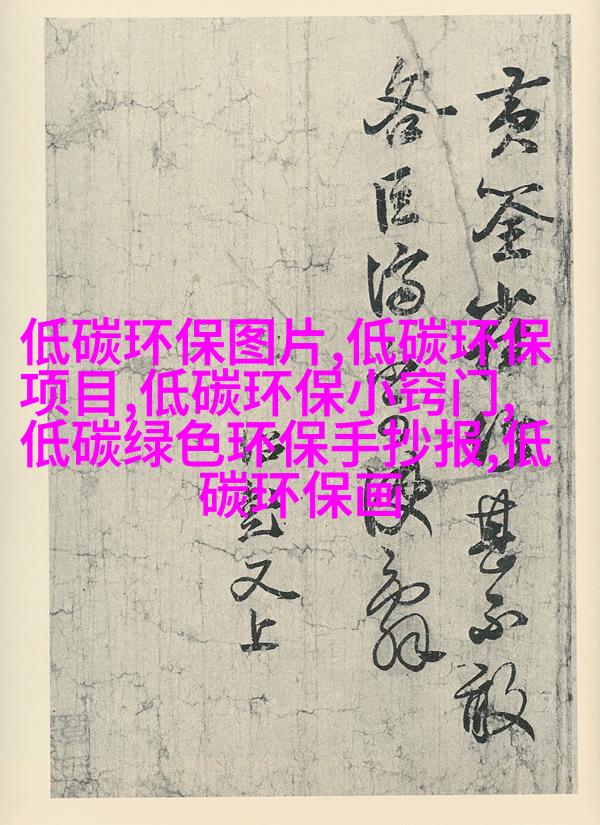 低碳环保图片,低碳环保
项目,低碳环保小窍门,
低碳绿色环保手抄报,低
碳环保画
黄筌 甚不敢
巨济
彭又上